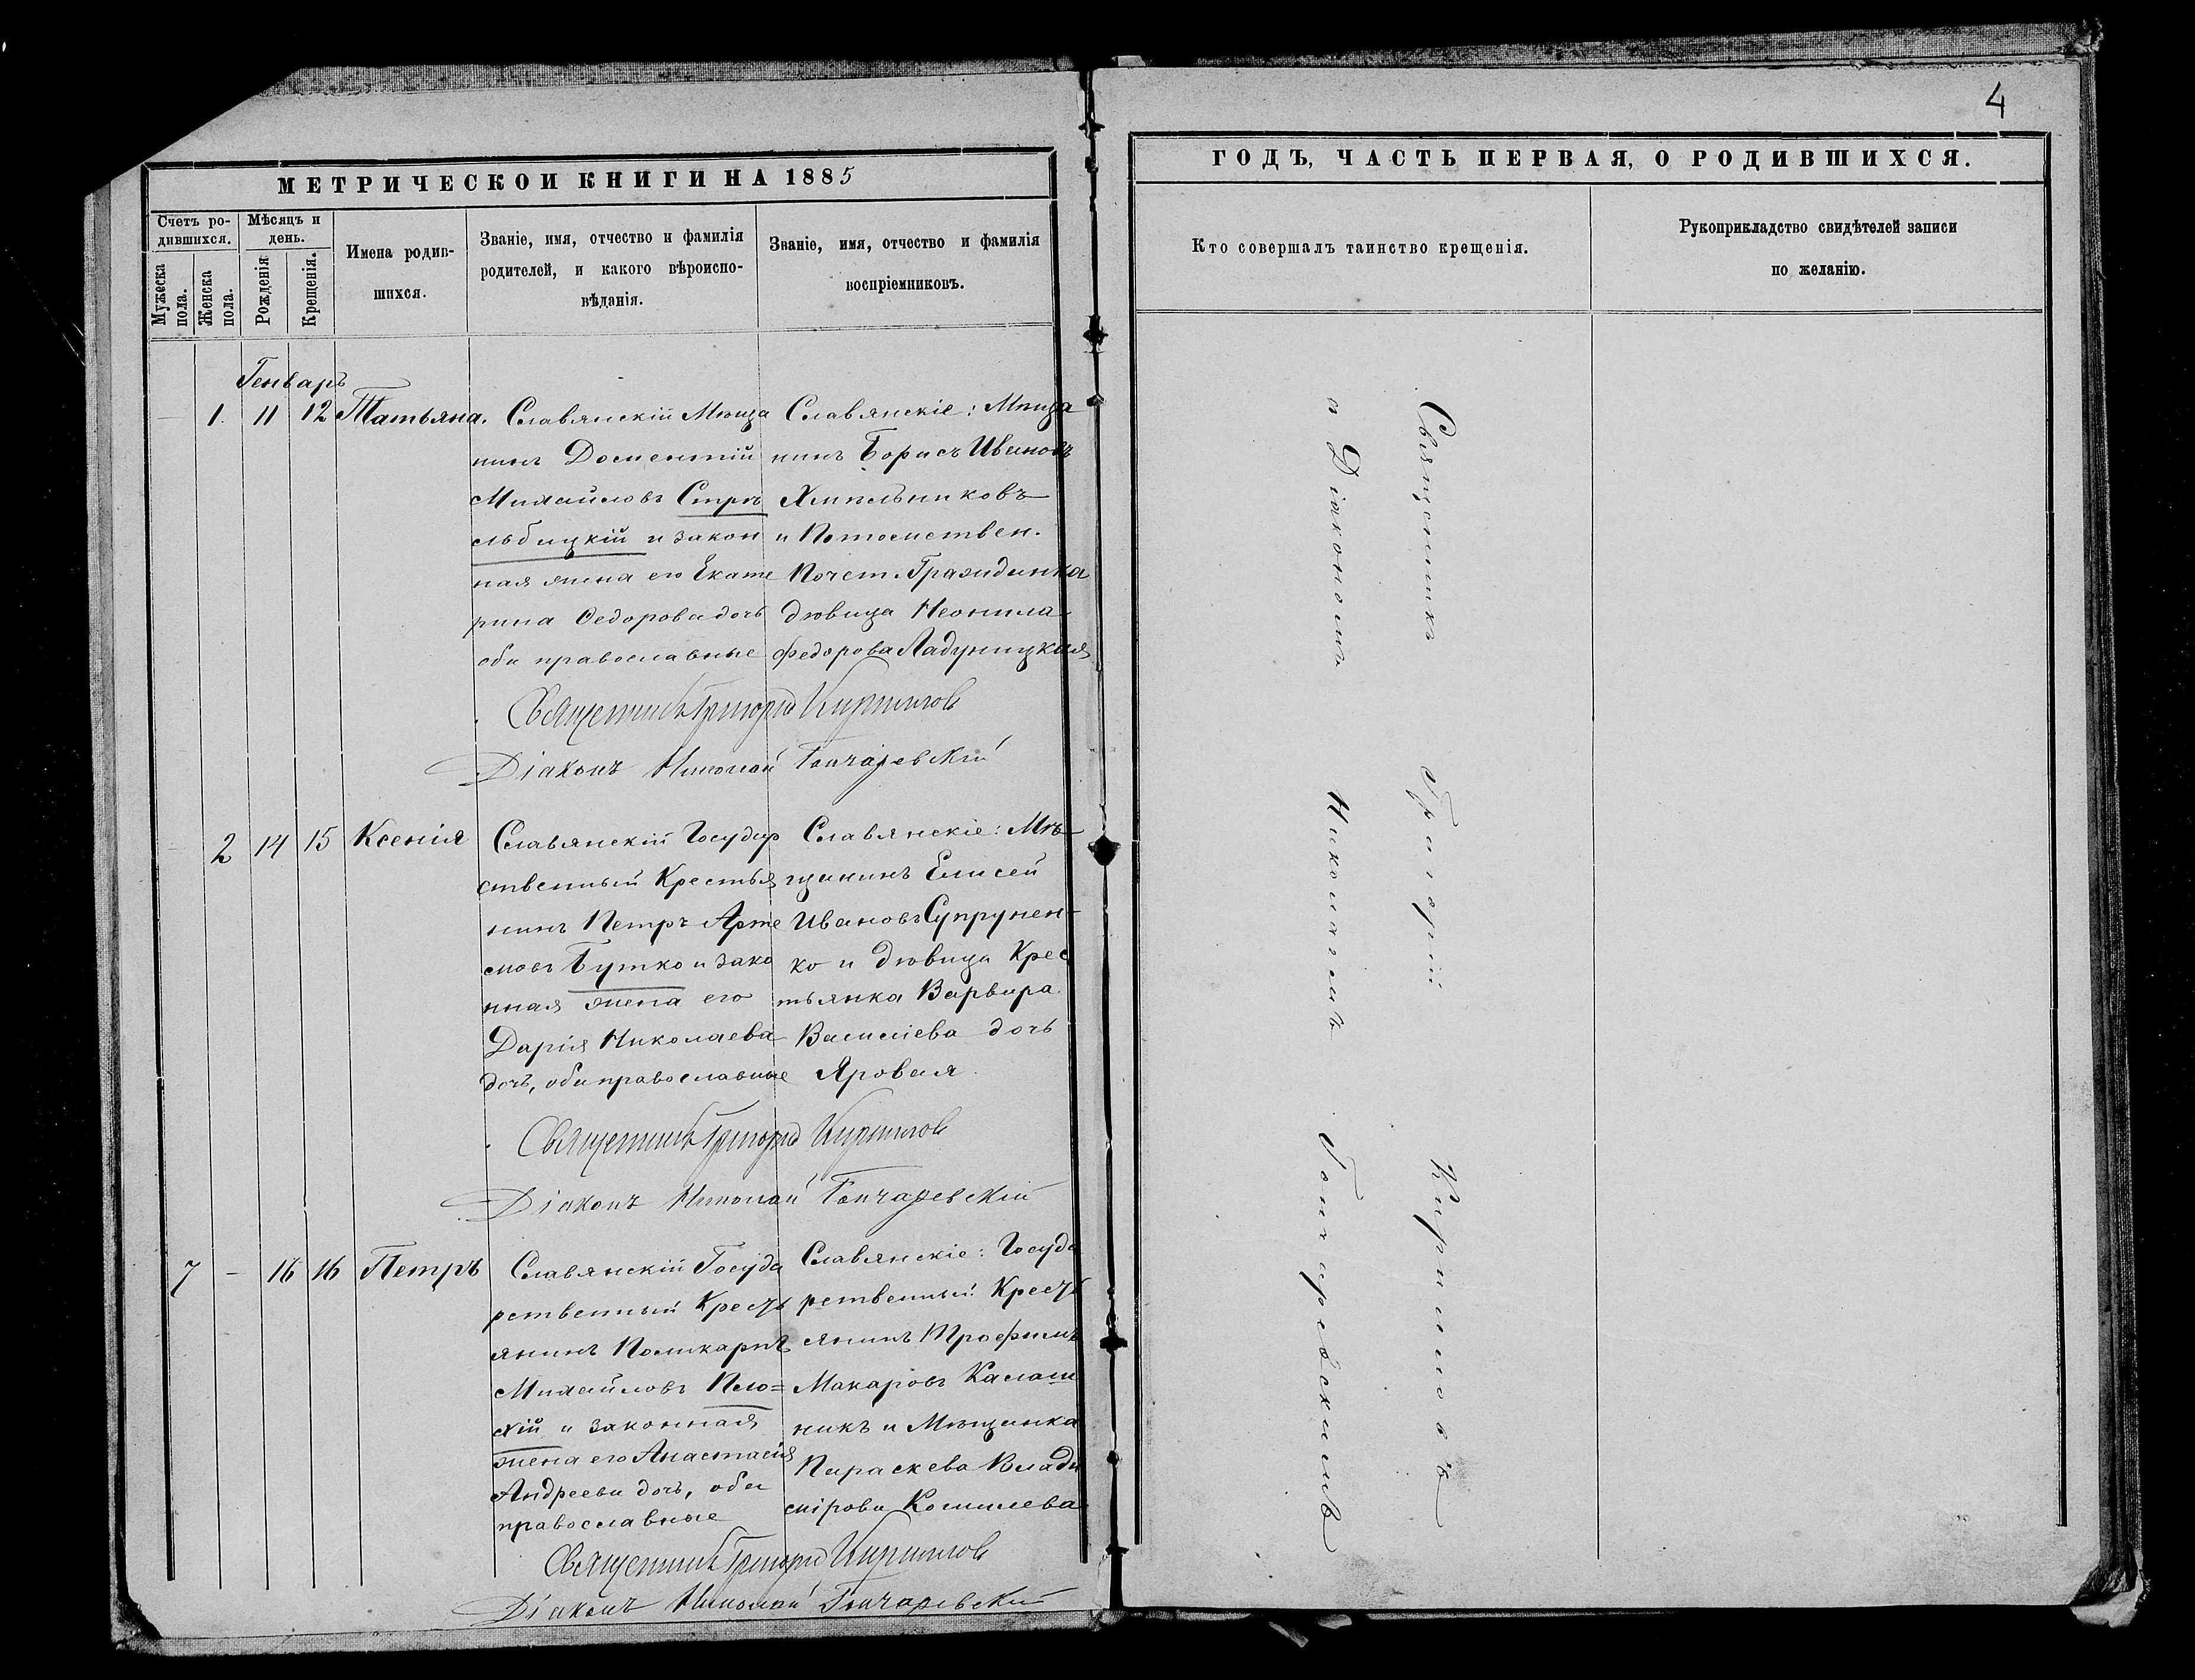 4
МЕТРИЧЕСКОИ КНИГИ НА 1885
ГОДЪ, ЧАСТЬ ПЕРВАЯ, О РОДИВШИХСЯ.
Счетъ ро-
дившихся.
Мѣсяцъ и
день.
Мужеска
пола.
Женска
пола.
Рожденія
Крещенія.
Имена родив-
шихся.
Званіе, имя, отчество и фамилія
родителей, и какого вѣроиспо-
вѣданія.
Званіе, имя, отчество и фамилія
воспріемниковъ.
Кто совершалъ таинство крещенія.
Рукоприкладство свидѣтелей записи
по желанію.
Генварь
1. 11 12 Татьяна.
Славянскій Мѣща
нинъ Доментій
Михайловъ Стрѣ
льбицкій и закон
ная жена его Екате
рина Ѳедорова дочь
оба православные
Славянскіе: Мѣща
нинъ Борисъ Ивановъ
Хмѣльниковъ
и Потомствен.
Почет. Гражданка
дѣвица Неонила
Федорова Ладушицкая
Священникъ Григорій Кирилловъ
Діаконъ Николай Гончаревскій
2 14 15 Ксенія
Славянскій Государ
ственный Крестья
нинъ Петръ Арте
мовъ Бутко и зако
нная жена его
Дарія Николаева
дочь, оба православные
Славянскіе: Мѣ-
щанинъ Елисей
Ивановъ Супрунен-
ко и дѣвица Крес
тьянка Варвара
Василіева дочь
Яровая.
Священникъ Григорій Кирилловъ
Діаконъ Николай Гончаревскій
7 - 16 16 Петръ
Славянскій Госуда
рственный Кресть
янинъ Поликарпъ
Михайловъ Пло=
хій и законная
жена его Анастасія
Андреева дочь, оба
православные
Славянскіе: Госуда
рственный Кресть
янинъ Трофимъ
Макаровъ Калаш
никъ и Мѣщанка
Параскева Влади
мірова Кошелева
Священникъ Григорій Кирилловъ
Діаконъ Николай Гончаревскій
Священникъ Григорій Кирилловъ
и Діакономъ Николаемъ Гончаревскимъ